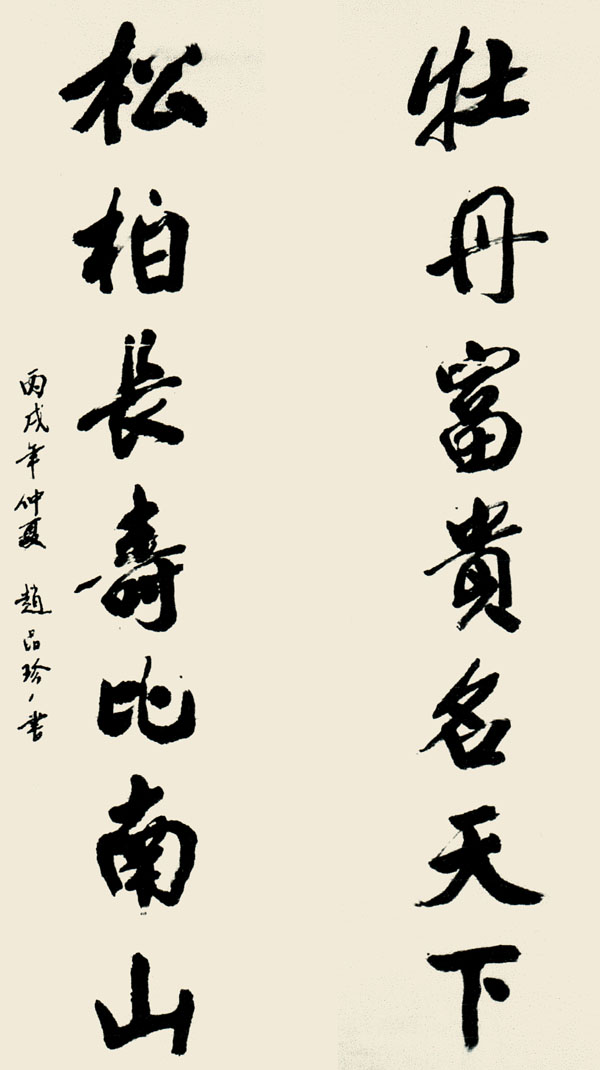 牡丹富貴名天下
松柏長壽比南山
丙戌年仲夏 趙品珍書